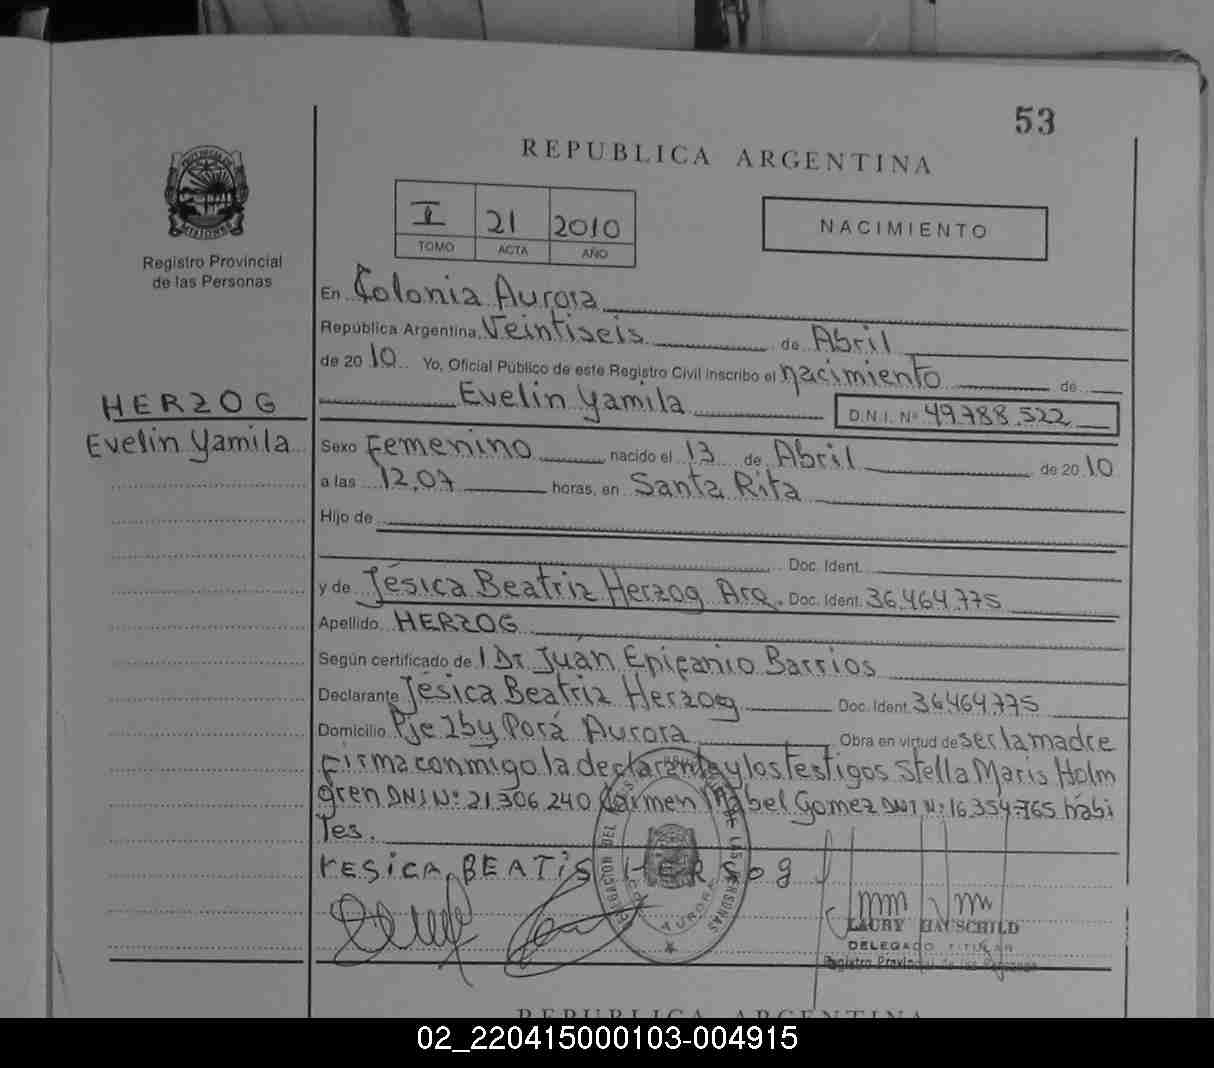 53
REPUBLICA ARGENTINA
I 21 2010
TOMO ACTA AÑO
NACIMIENTO
Registro Provincial
de las Personas
En Colonia Aurora
República Argentina, Veintiseis de Abril
de 2010. Yo, Oficial Público de este Registro Civil inscribo el nacimiento de
Evelin Yamila D.N.I. Nº 49.788.522
HERZOG
Evelin Yamila
Sexo Femenino nacido el 13 de Abril de 2010
a las 12,07 horas, en Santa Rita
Hijo de
Doc. Ident.
y de Jésica Beatriz Herzog Arg. Doc. Ident. 36.464.775
Apellido HERZOG
Según certificado de l Dr Juán Epifanio Barrios
Declarante Jésica Beatriz Herzog Doc. Ident. 36.464.775
Domicilio Pje Iby Porá Aurora Obra en virtud de ser la madre
Firma conmigo la declarante y los testigos Stella Maris Holm
gren DNI Nº 21.306.240 Carmen Mabel Gomez DNI Nº 16.354.765 hábi
les.
YESiCA BEATiS HERSOg
AURORA
LAURY HAUSCHILD
DELEGADO TITULAR
Registro Provincial de las Personas
REPUBLICA ARGENTINA
02_220415000103-004915